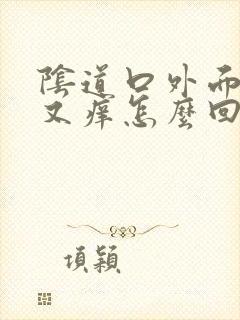 陰道口外而
又痒怎麼回
項穎